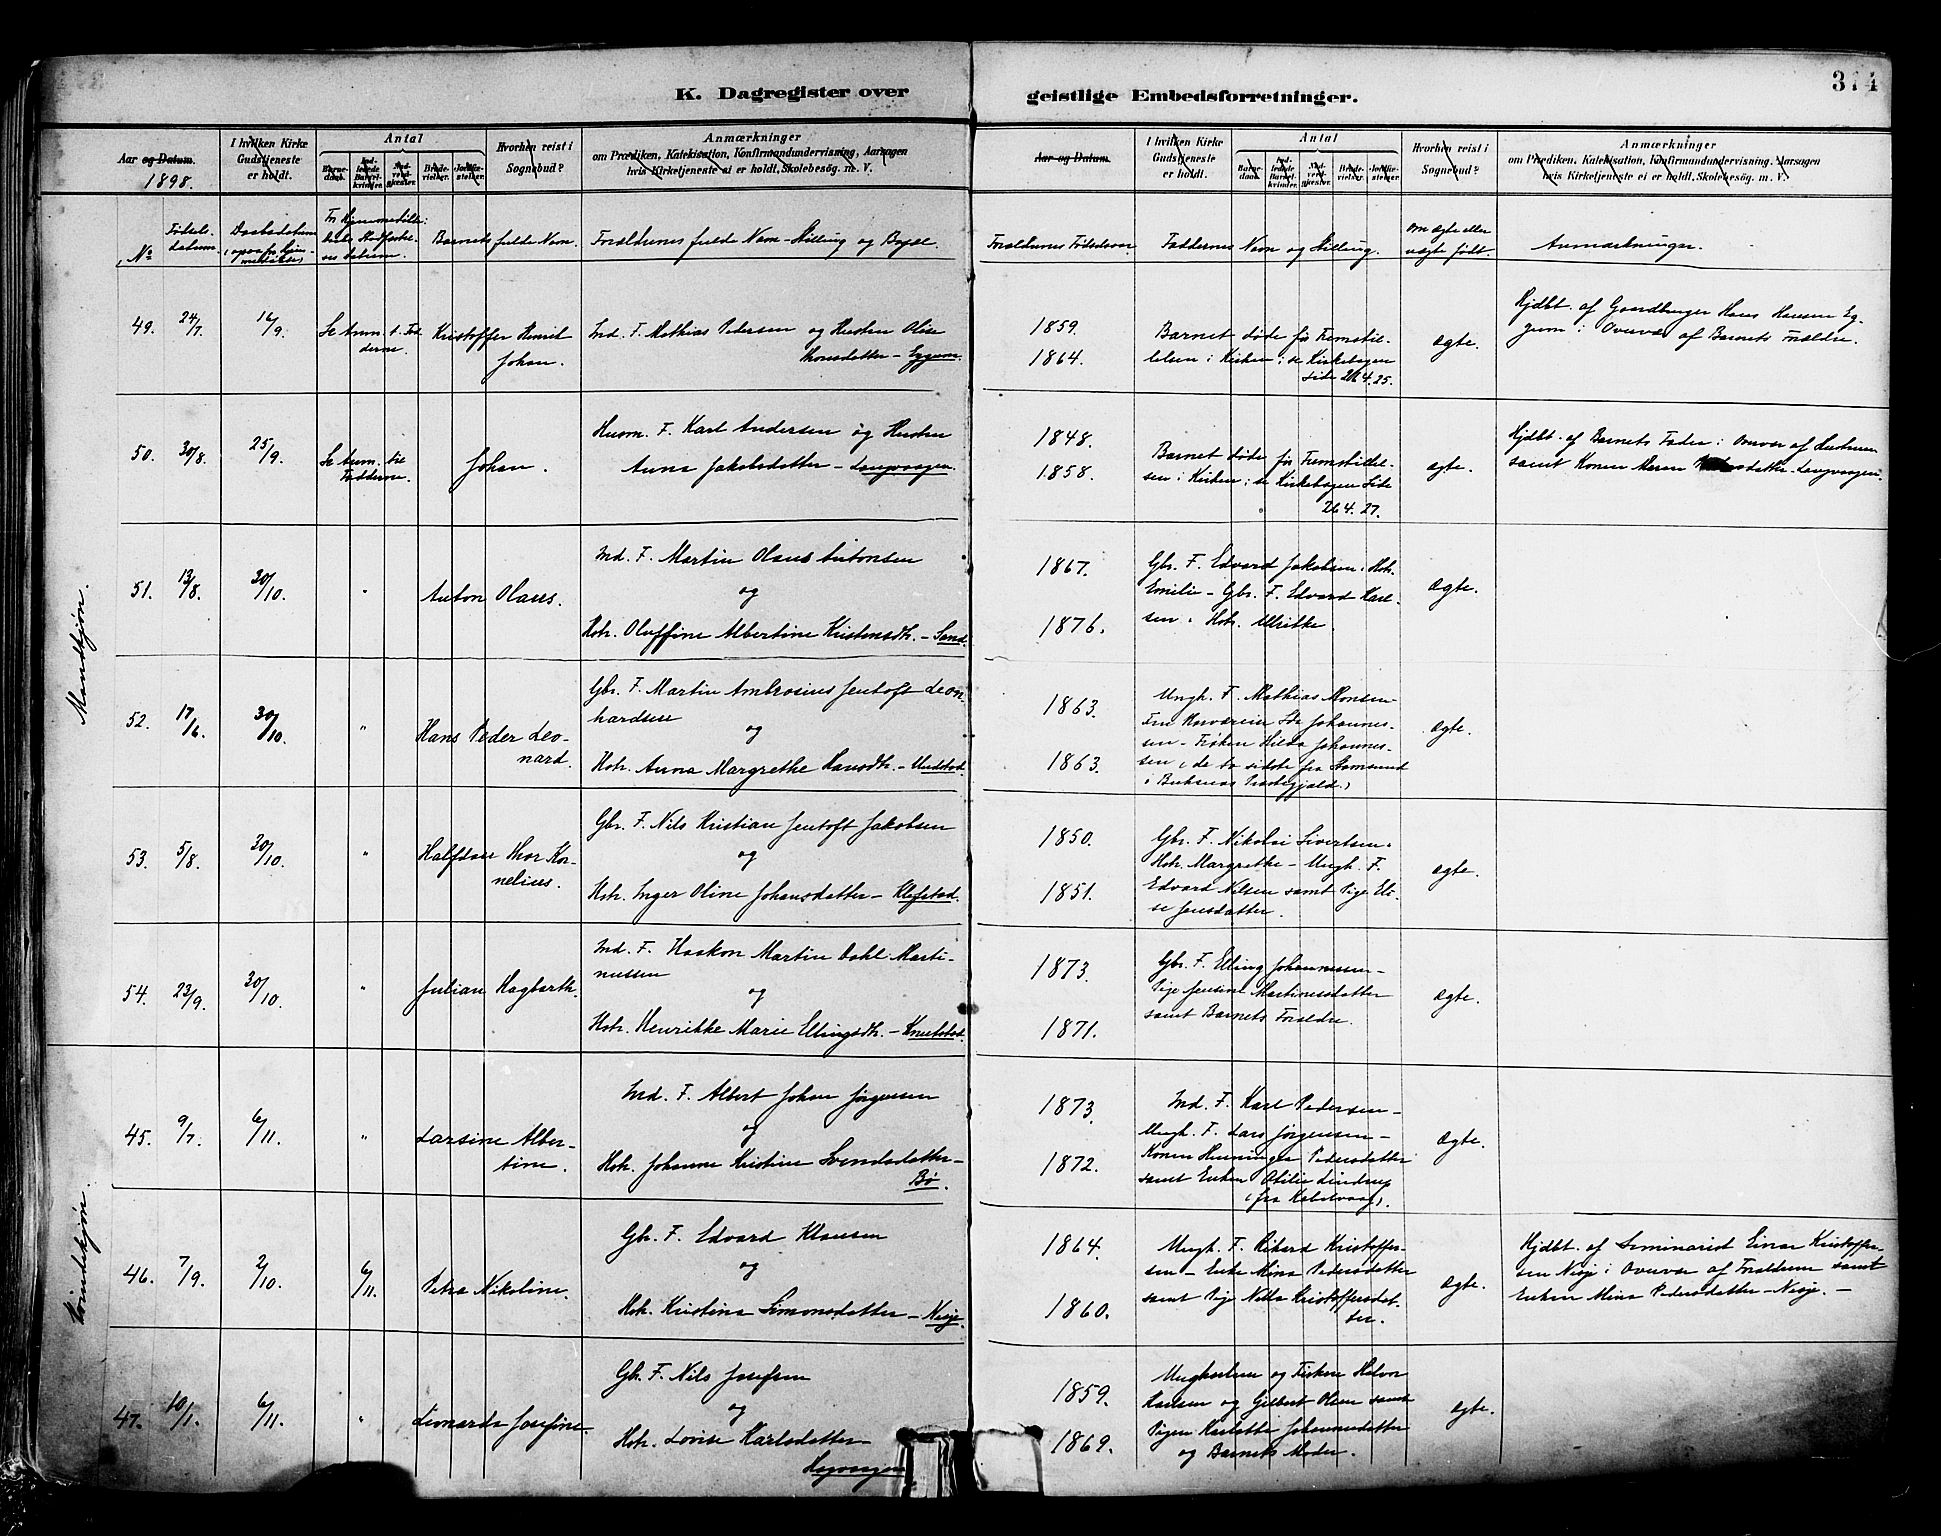 K. Dagregister over
geistlige Embedsforretninger.
314
Aar og Datum.
1898.
I hvilken Kirke Gudstjeneste er holdt.
Antal
Barnedaab.
Indledede Barselkvinder.
Nadvergjester.
Brudevielser.
Jordfæstelser.
Hvorhen reist i Sognebud?
Anmærkninger
om Prædiken, Katekisation, Konfirmandundervisning, Aarsagen
hvis Kirketjeneste ei er holdt, Skolebesøg. m. V.
Aar og Datum.
I hvilken Kirke Gudstjeneste er holdt.
Antal
Barnedaab.
Indledede Barselkvinder.
Nadvergjester.
Brudevielser.
Jordfæstelser.
Hvorhen reist i Sognebud?
Anmærkninger
om Prædiken, Katekisation, Konfirmandundervisning, Aarsagen
hvis Kirketjeneste ei er holdt, Skolebesøg. m. V.
No
Fødsels-
datum.
Daabsdatum
Barnets fulde Navn.
Forældrenes fulde Navn – Stilling og Bopæl.
Forældrenes Fødselsaar
Faddernes Navn og Stilling.
Om ægte eller
uægte født.
Anmærkninger.
Mandkjøn.
49. 24/7. 16/9. Se Anm. t. Fad-
derne.
Kristoffer
Johan.
Ind. F. Mathias Pedersen og Hustru Oline
Monsdatter – Eggum.
1859.
1864.
Barnet døde før Fremstil-
lelsen i Kirken; se Kirkebogen
Side 264. 25.
ægte.
Hjdbt. af Gaardbruger Hans Hansen Eg-
gum i Overvær af Barnets Forældre.
50. 30/8. 25/9. Se Anm. til
Fadderne.
Johan.
Husm. F. Karl Andersen og Hustru
Anna Jakobsdatter – Langvaagen.
1848.
1858.
Barnet døde før Fremstillel-
sen i Kirken; se Kirkebogen Side
264. 27.
ægte.
Hjdbt. af Barnets Fader i Overvær af Hustruen
samt Konen Maren datter Langvaagen.
51. 13/8. 30/10. "
Anton Olaus.
Ind. F. Martin Olaus Antonsen
og
Hstr. Oluffine Albertine Kristensdtr. – Sand.
1867.
1876.
Gbr. F. Edvard Jakobsen, Hstr.
Emilie – Gbr. F. Edvard Karl-
sen, Hstr. Ulrikke
ægte.
52. 17/6. 30/10. "
Hans Peder Leo-
nard.
Gbr. F. Martin Ambrosius Jentoft Leon-
hardsen
og
Hstr. Anna Margrethe Hansdtr. – Unstad.
1863.
1863.
Ungk. F. Mathias Monsen
Johannes-
sen – Frøken Hilda Johannes-
sen (de to sidste fra Stamsund
i Buksnes Præstegjæld.)
ægte.
53. 5/8. 30/10. "
Halfdan Thor Kor-
nelius.
Gbr. F. Nils Kristian Jentoft Jakobsen
og
Hstr. Inger Oline Johansdatter – Klefstad.
1850.
1851.
Gbr. F. Nikolai Sivertsen,
Hstr. Margrethe – Ungk. F.
Edvard Nilsen samt Pige Eli-
se Jensdatter.
ægte.
54. 23/9. 30/10. "
Julian Hagbarth.
Ind. F. Haakon Martin Dahl Marti-
nussen
og
Hstr. Henrikke Marie Ellingsdtr. – Knutstad.
1873.
1871.
Gbr. F. Elling Johannessen –
Pige Jensine Martinusdatter
samt Barnets Forældre.
ægte.
Kvindekjøn.
45. 9/7. 6/11. "
Larsine Alber-
tine.
Ind. F. Albert Johan Jørgensen
og
Hstr. Johanne Kristine Svendsdatter –
Bø.
1873.
1872.
Ind. F. Karl Pedersen –
Ungk. F. Lars Jørgensen –
Konen Henninga Pedersdatter
samt Enken Otilie Lindrup
(fra Kabelvaag).
ægte.
46. 7/9. 2/10. 6/11.
Petra Nikoline.
Gbr. F. Edvard Klausen
og
Hstr. Kristina Simonsdatter – Nesje.
1864.
1860.
Ungk. F. Rikard Kristoffer-
sen – Enke Mina Pedersdatter
samt Pige Nella Kristoffersdat-
ter.
ægte.
Hjdbt. af Seminarist Einar Kristoffer-
sen Nesje i Overvær af Forældrene samt
Enken Mina Pedersdatter – Nesje. –
47. 10/1. 6/11. "
Leonarda Josefine.
Gbr. F. Nils Josefsen
og
Hstr. Lovise Karlsdatter –
Hagvaagen
1859.
1869.
Ungkarlene og Fiskere Halvor
Karlsen og Gilbert Olsen samt
Pigen Karlotte Johannesdatter
og Barnets Moder.
ægte.